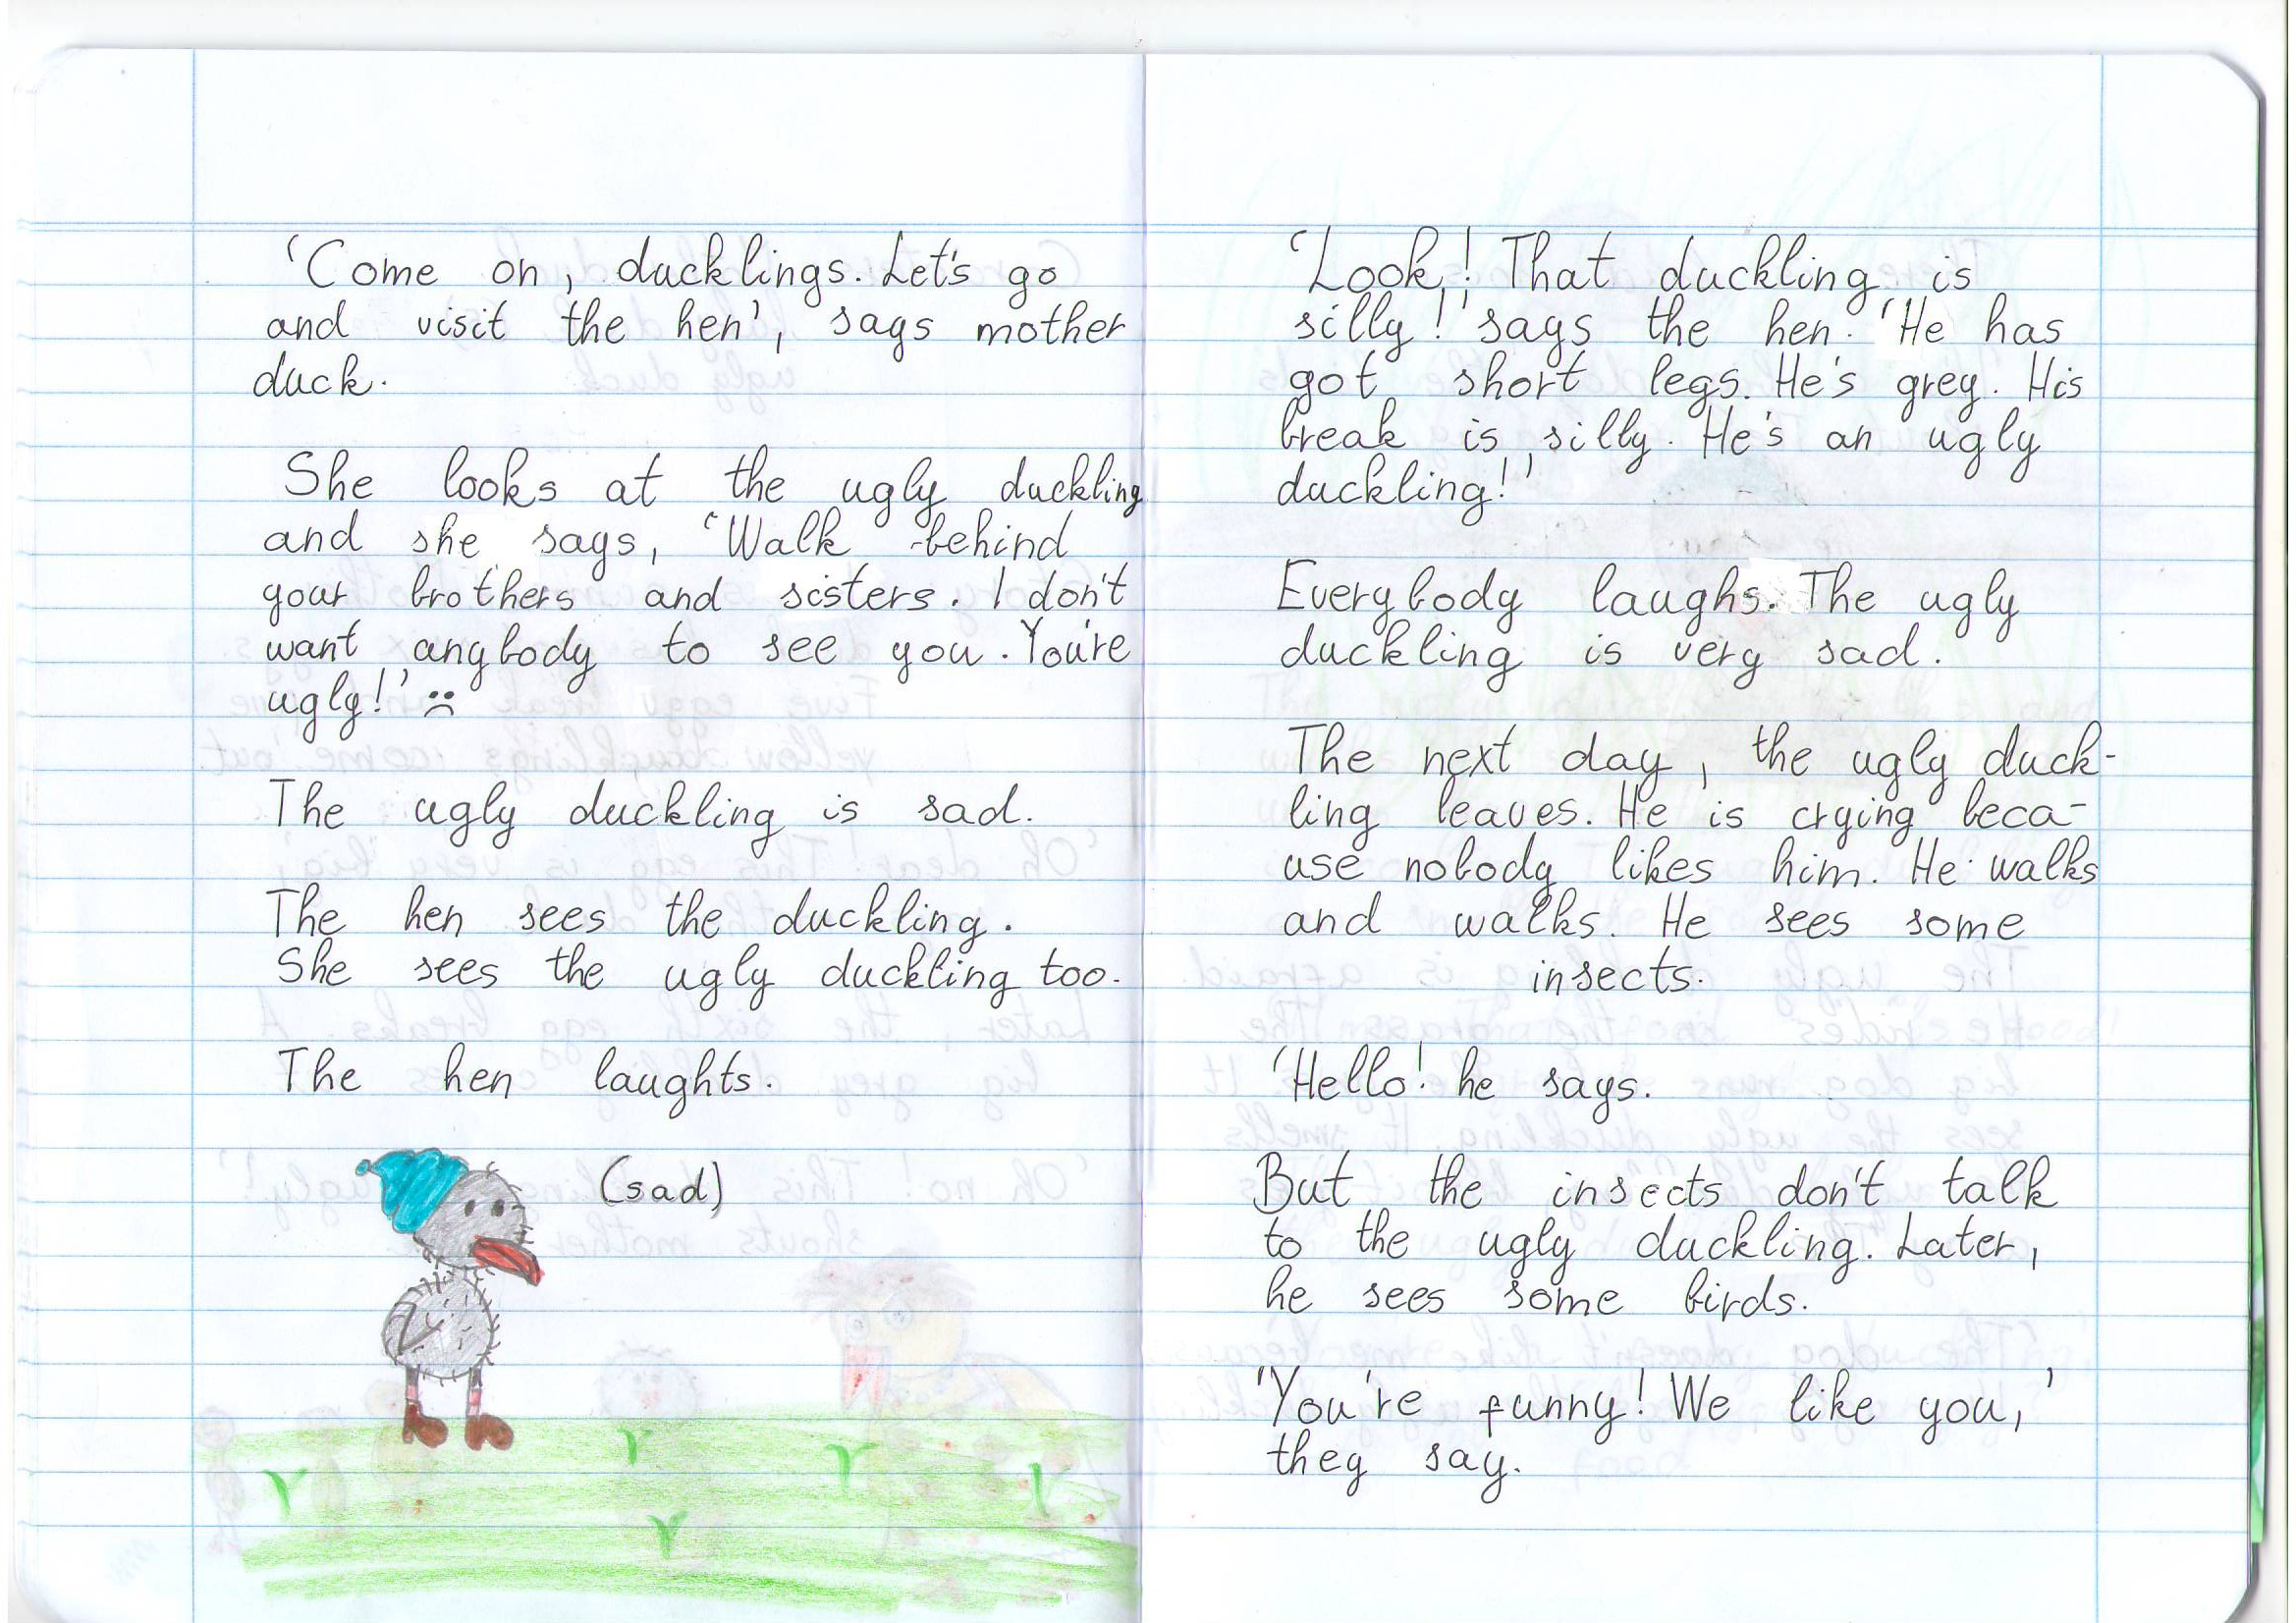 'Come on, ducklings. Let's go
and visit the hen', says mother
duck.
She looks at the ugly duckling
and she says, 'Walk behind
your brothers and sisters. I don't
want anybody to see you. You're
ugly!'
The ugly duckling is sad.
The hen sees the duckling.
She sees the ugly duckling too.
The hen laughts.
(sad)
'Look! That duckling is
silly!' says the hen. 'He has
got short legs. He's grey. His
break is silly. He's an ugly
duckling!'
Everybody laughs. The ugly
duckling is very sad.
The next day, the ugly duck-
ling leaves. He is crying beca-
use nobody likes him. He walks
and walks. He sees some
insects.
'Hello! he says.
But the insects don't talk
to the ugly duckling. Later,
he sees some birds.
'You're funny! We like you,'
they say.